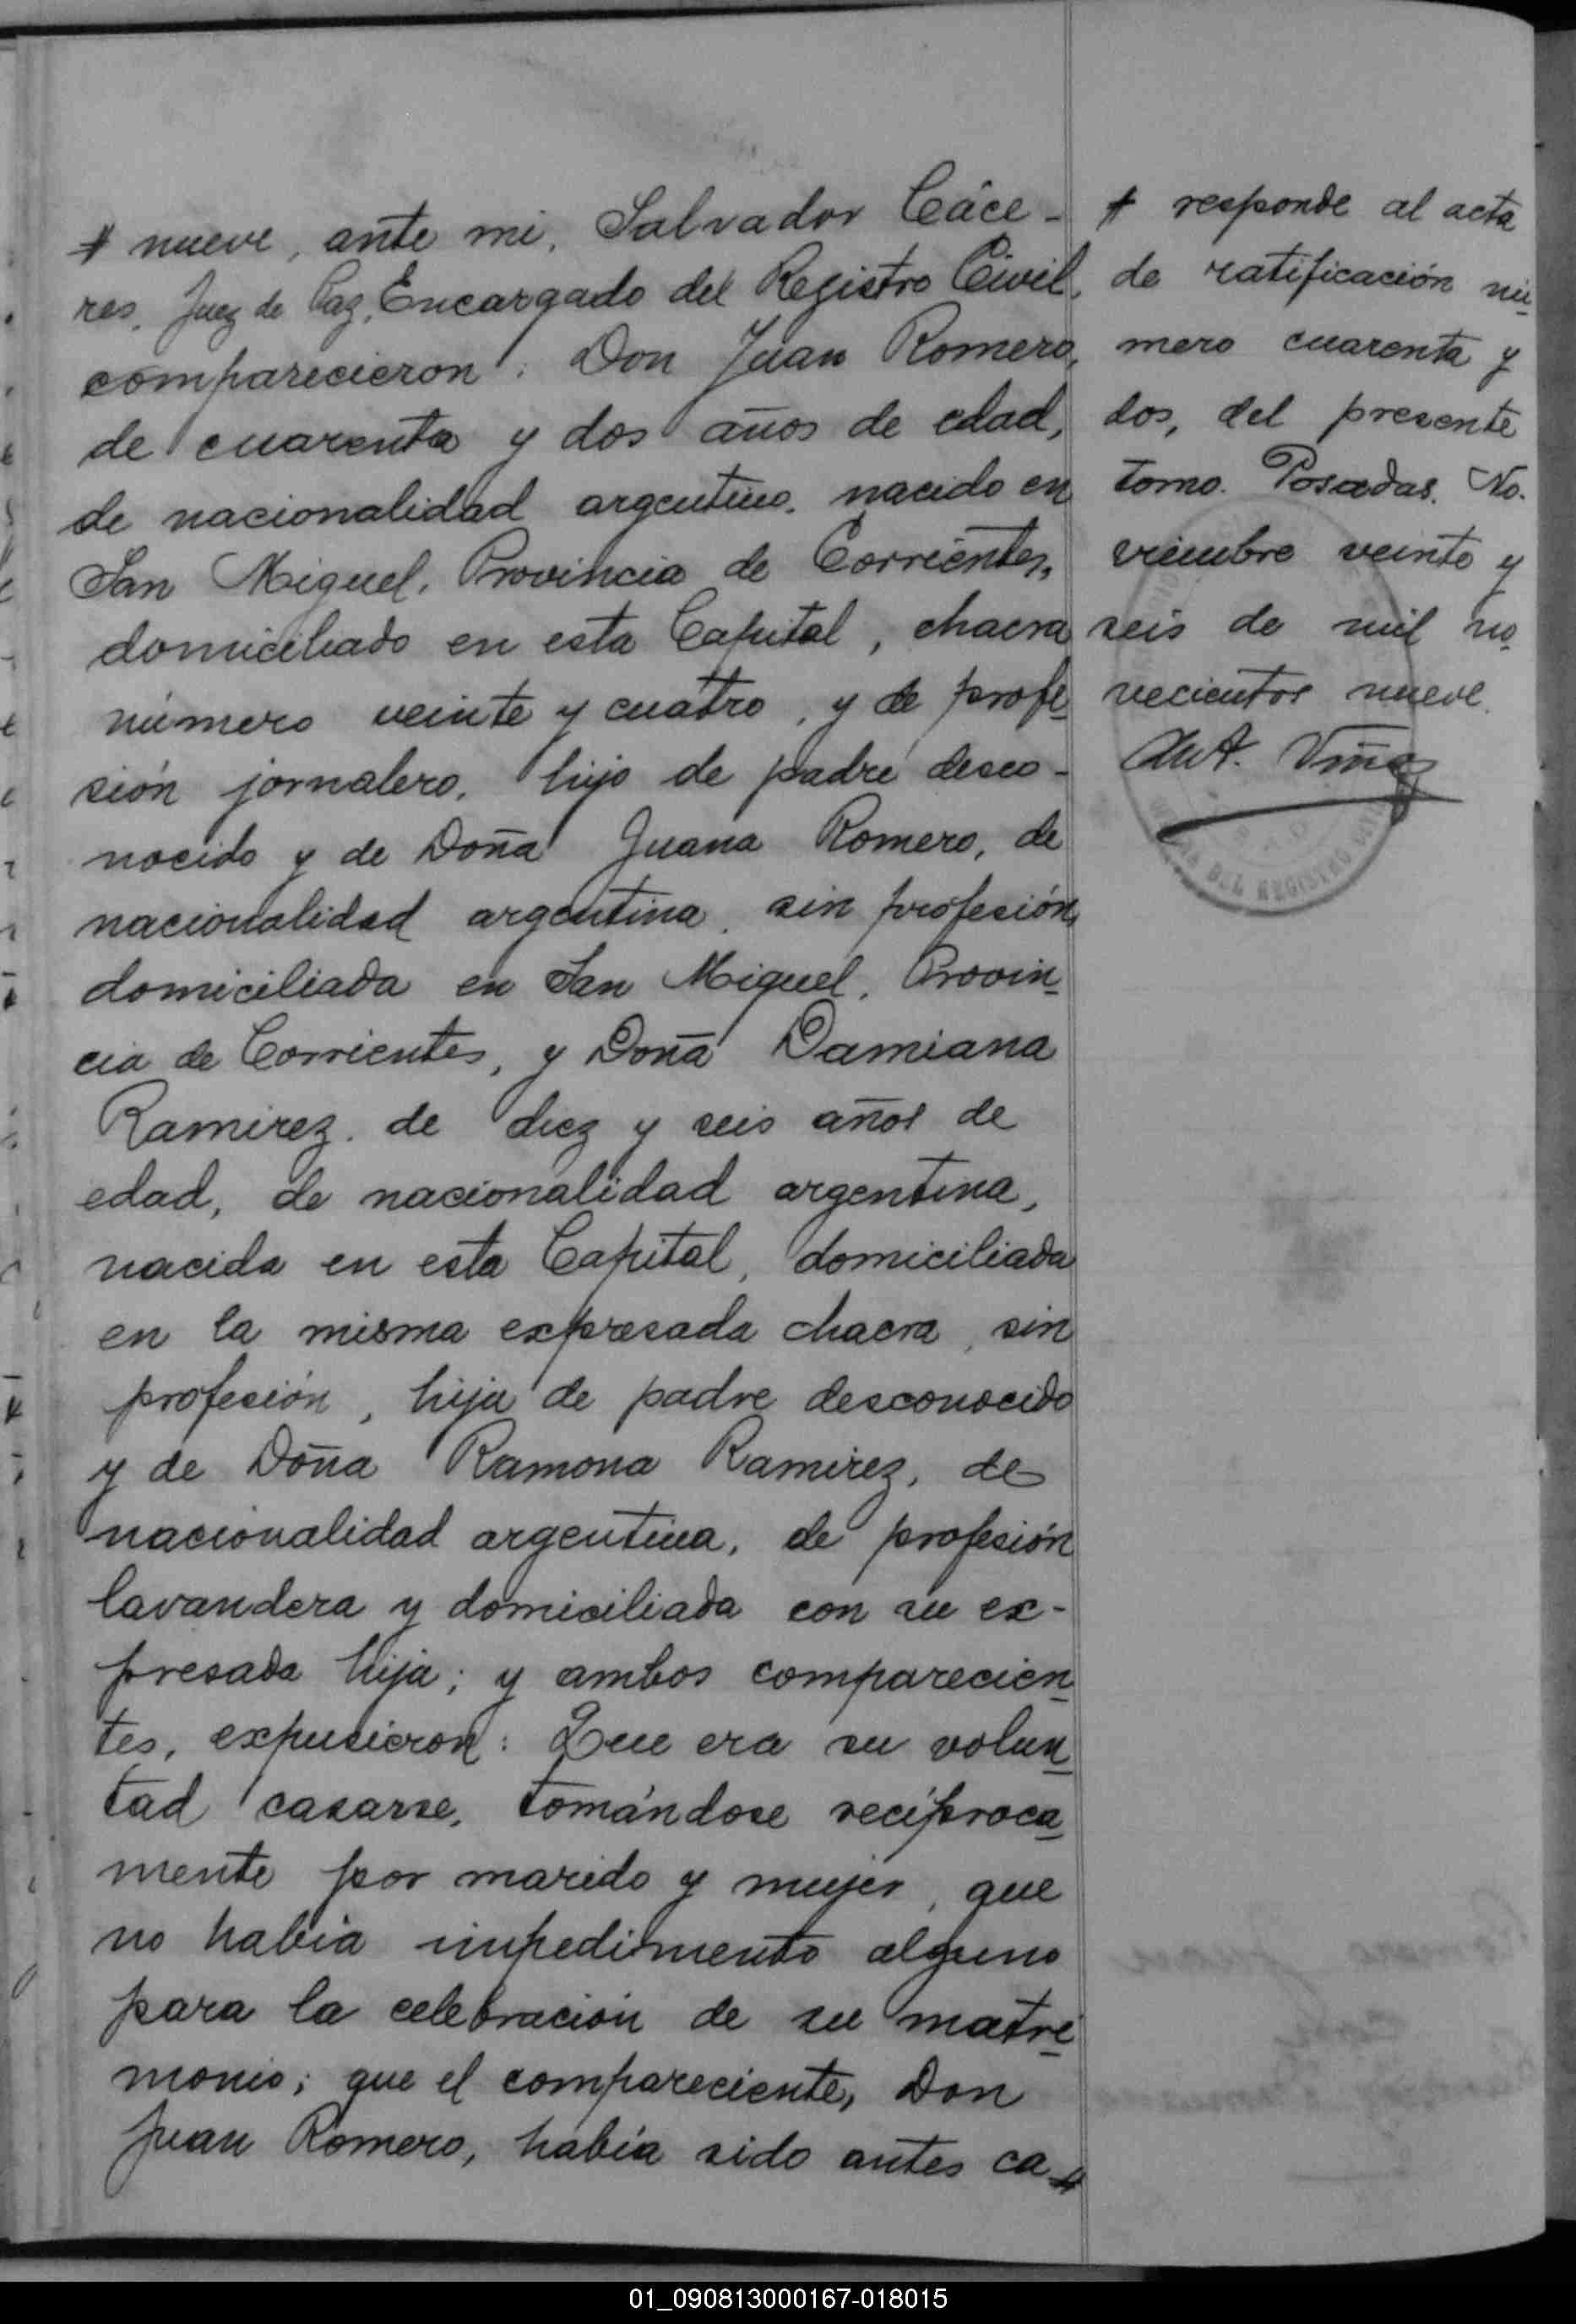 # nueve, ante mi, Salvador Cáce-
res, Juez de Paz, Encargado del Registro Civil,
comparecieron: Don Juan Romero,
de cuarenta y dos años de edad,
de nacionalidad argentino, nacido en
San Miguel, Provincia de Corrientes,
domiciliado en esta Capital, chacra
número veinte y cuatro, y de profe-
sión jornalero, hijo de padre desco-
nocido y de Doña Juana Romero, de
nacionalidad argentina, sin profesión,
domiciliada en San Miguel, Provin-
cia de Corrientes, y Doña Damiana
Ramirez, de diez y seis años de
edad, de nacionalidad argentina,
nacida en esta Capital, domiciliada
en la misma expresada chacra, sin
profesión, hija de padre desconocido
y de Doña Ramona Ramirez, de
nacionalidad argentina, de profesión
lavandera y domiciliada con su ex-
presada hija; y ambos comparecien-
tes, expusieron: Que era su volun-
tad casarse, tomándose recíproca-
mente por marido y mujer, que
no había impedimento alguno
para la celebración de su matri-
monio; que el compareciente, Don
Juan Romero, había sido antes ca #
# responde al acta
de ratificación nú-
mero cuarenta y
dos, del presente
tomo. Posadas, No-
viembre veinte y
seis de mil no-
vecientos nueve.
DEL REGISTRO CIVIL
01_090813000167-018015